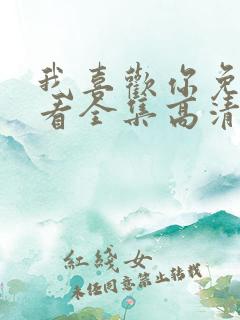 我喜歡你免
看全集高清
紅綫女
未经同意禁止转载